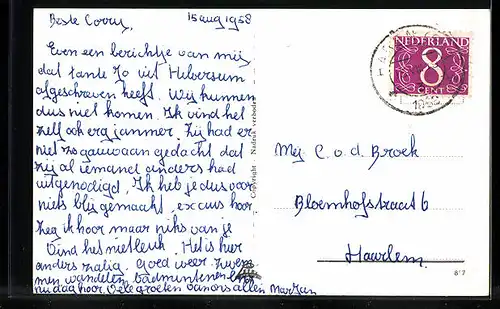 Beste Corry, 15 aug 1958
Even een berichtje van mij
dat tante Jo uit Hilversum
afgeschreven heeft. Wij kunnen
dus niet komen. Ik vind het
zelf ook erg jammer. Zij had er
niet zo gauw aan gedacht dat
zij al iemand anders had
uitgenodigd. Ik heb je dus voor
niets blij gemaakt, excuus hoor
zeg ik hoor maar niks van je
Vind het niet leuk. Het is hier
anders zalig. Goed weer, zwem-
men wandelen badmintonnen
nu dag hoor. Vele groeten van ons allen Marjan
Copyright Nadruk verboden
NEDERLAND
8
CENT
1958
Mej C. v. d. Broek
Bloemhofstraat 6
Haarlem.
8*7